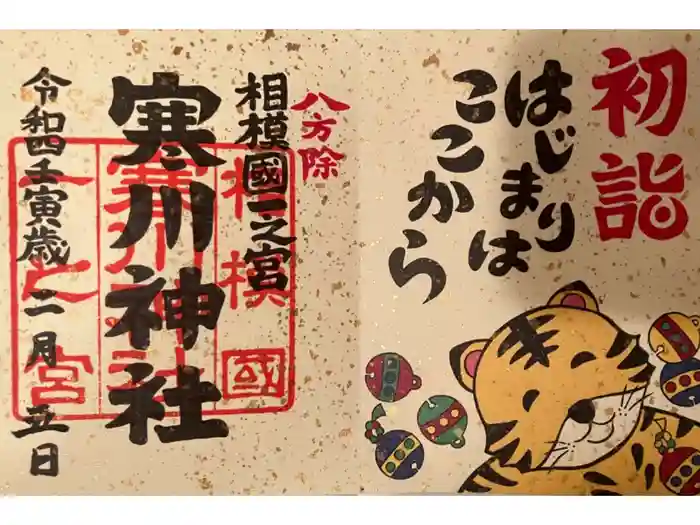 初詣
はじまりは
ここから
八方除
相模國一之宮
寒川神社
令和四壬寅歳二月五日
相模國
一之宮